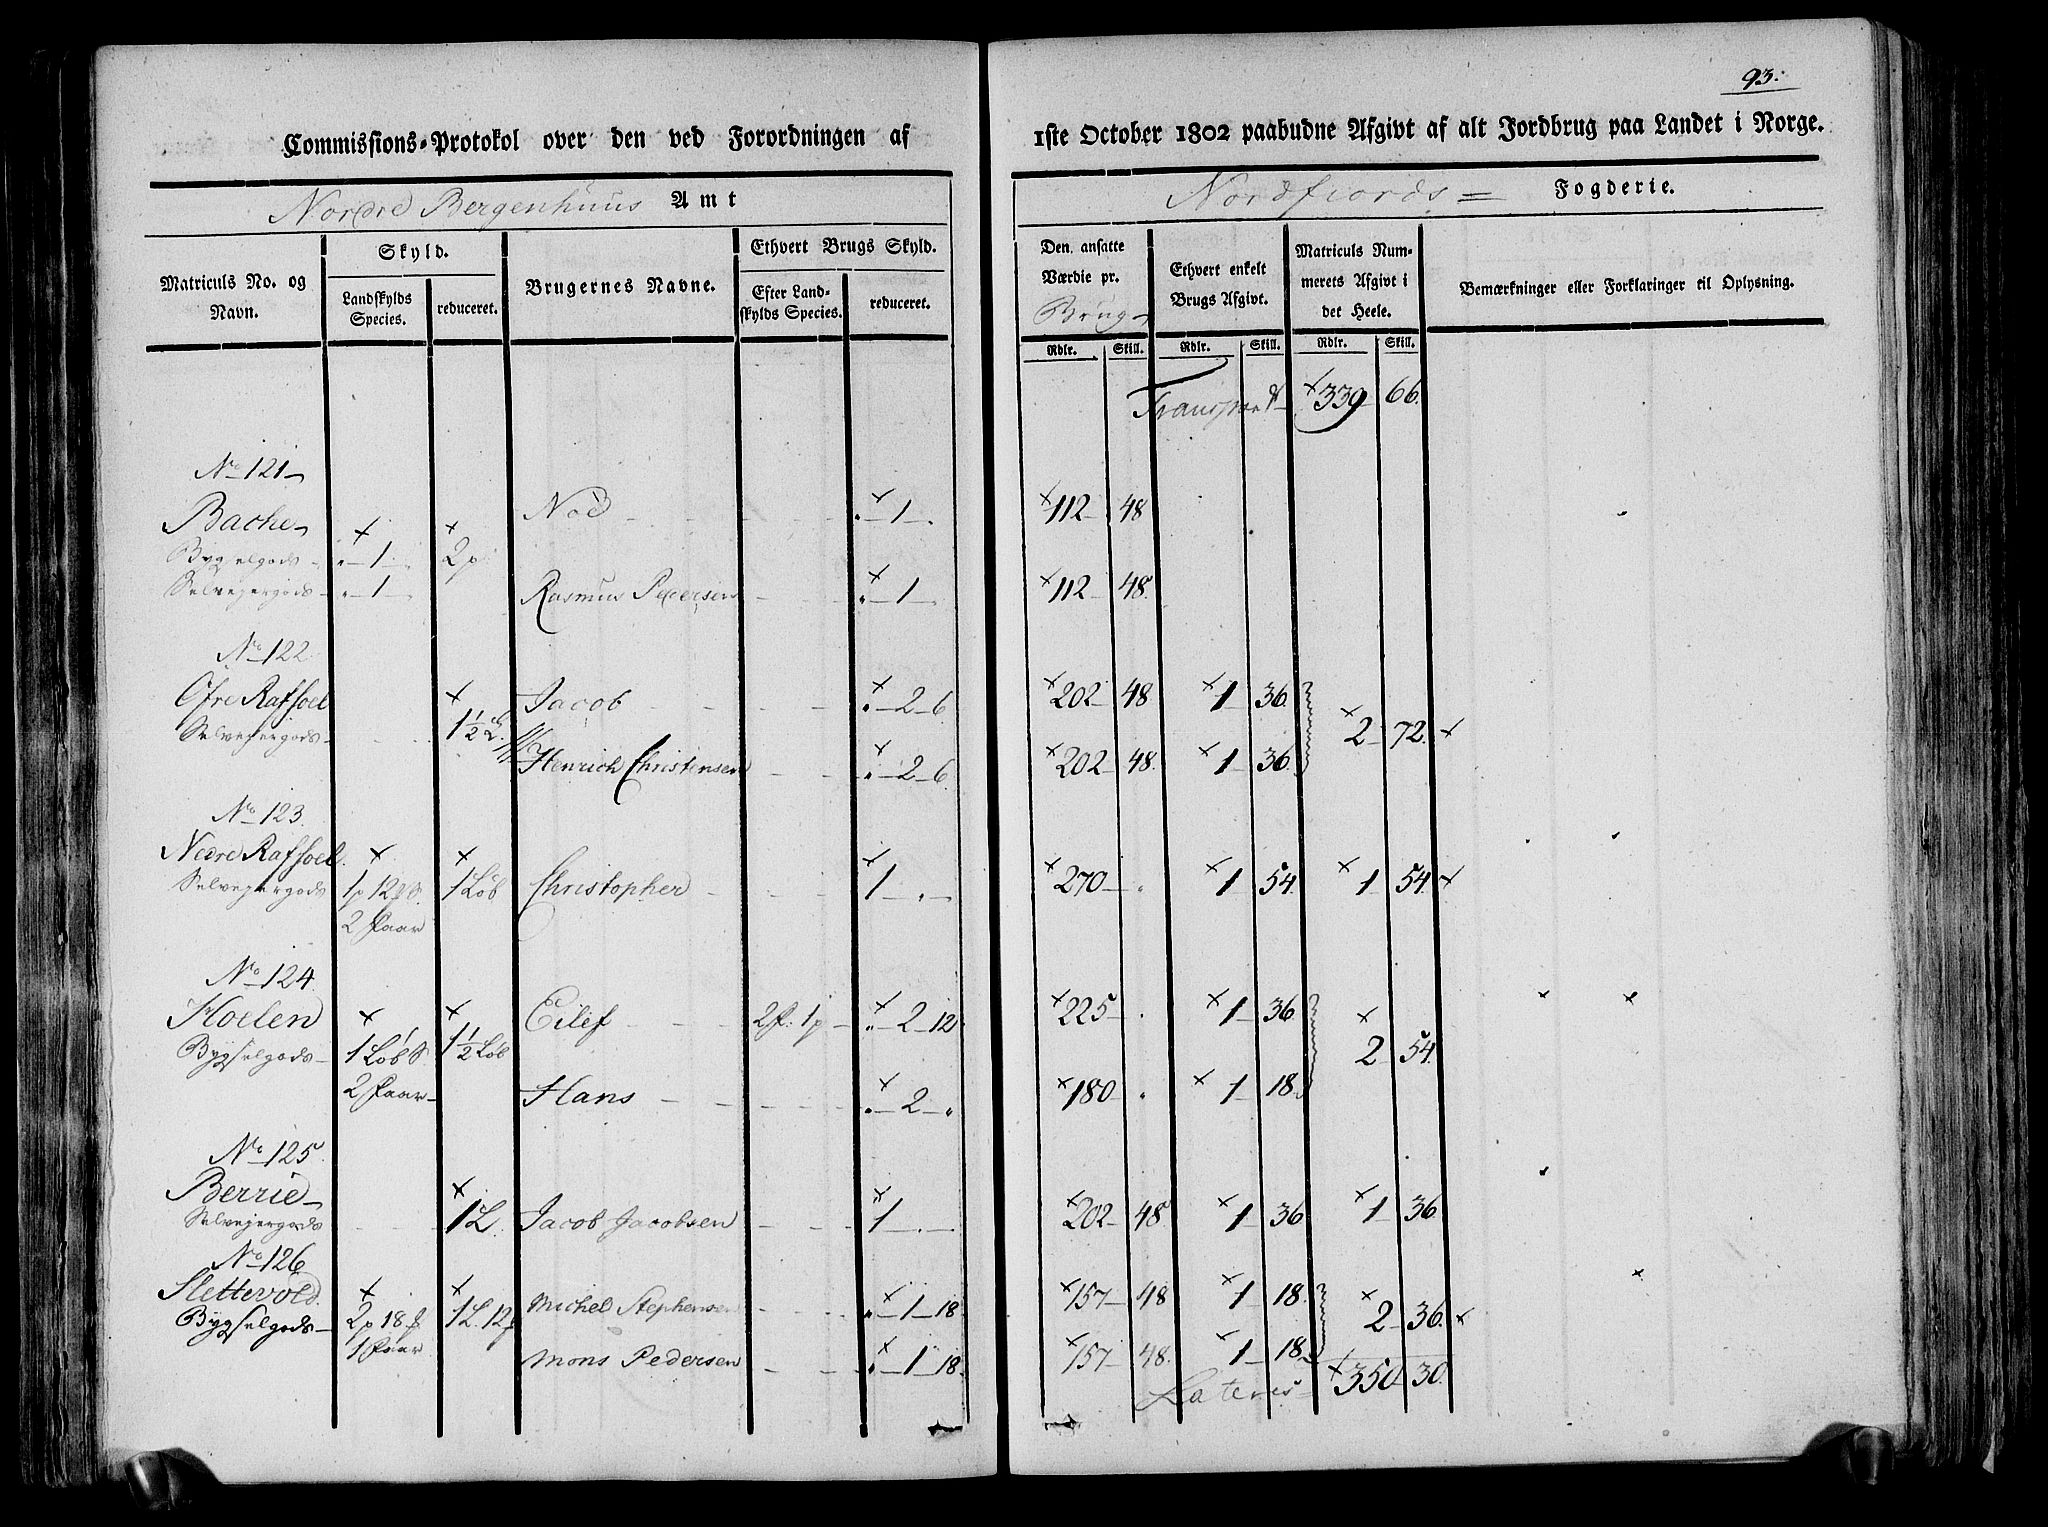 93.
Commissions-Protokol over den ved Forordningen af 1ste October 1802 paabudne Afgivt af alt Jordbrug paa Landet i Norge.
Nordre Bergenhuus Amt
Nordfiords Fogderie.
Matriculs No. og Navn.
Skyld.
Landskylds Species.
reduceret.
Brugernes Navne.
Ethvert Brugs Skyld.
Efter Landskylds Species.
reduceret.
Den ansatte Værdie pr. Brug
Ethvert enkelt Brugs Afgivt.
Matriculs Nummerets Afgivt i det Heele.
Bemærkninger eller Forklaringer til Oplysning.
Rdlr. Skill. Rdlr. Skill. Rdlr. Skill.
Transport 339 66.
No 121
Bache Nod 1 112 48
Bygselgods 1 2 p
Selvejergods 1 Rasmus Pedersen 1 112 48.
No 122.
Øfre Rafsoel Jacob 2 6. 202 48 1 36.
Selvejergods 1½ L. 2 72.
Henrich Christensen 2 6. 202 48. 1 36.
No 123.
Nedre Rafsoel
Selvejergods 1 p 12 1 Løb Christopher 1 270 1 54. 1 54.
2 Faar
No 124.
Hoelen Eilef 2 f: 1 p 2 12 225 1 36
Bygselgods 1 Løb 1½ Løb 2 54.
2 Faar Hans 2 180 1 18.
No 125.
Berrie
Selvejergods 1 L. Jacob Jacobsen 1 202 48 1 36 1 36
No 126
Slettevold
Bygselgods 2 p 18 1 L. 12 Michel Stephensen 1 18 157 48 1 18. 2 36.
1 Faar Mons Pedersen 1 18. 157 48. 1 18.
Lateris 350 30.